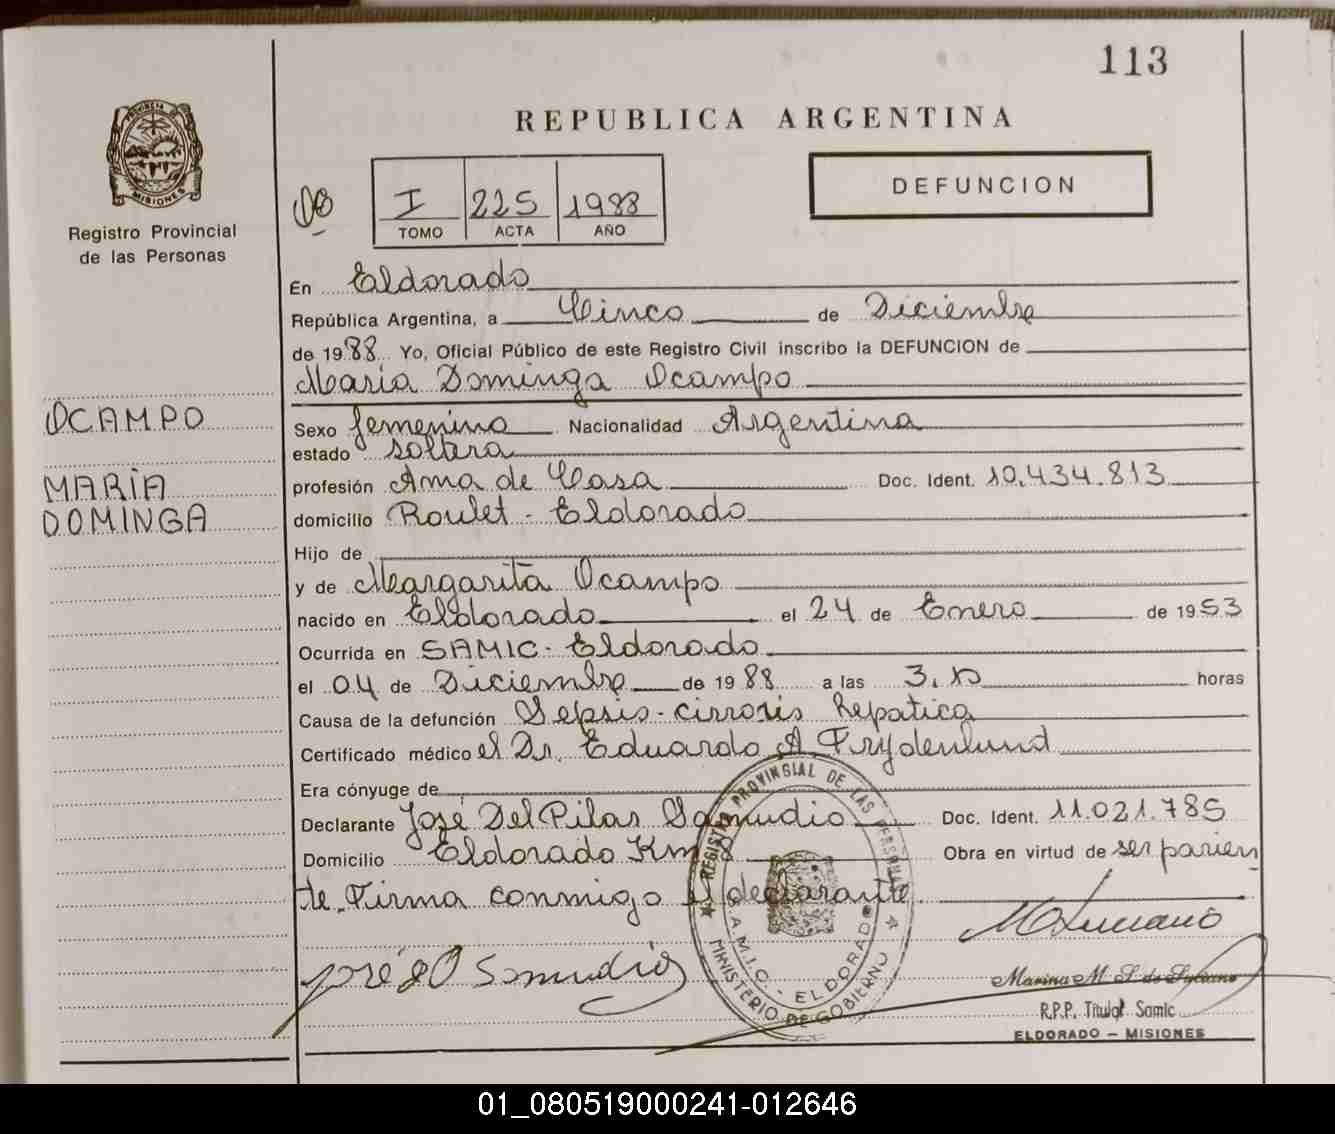 113
REPUBLICA ARGENTINA
PROVINCIA DE
MISIONES
Registro Provincial
de las Personas
I 225 1988
TOMO ACTA AÑO
DEFUNCION
En Eldorado
República Argentina, a Cinco de Diciembre
de 1988 Yo, Oficial Público de este Registro Civil inscribo la DEFUNCION de
Maria Dominga Ocampo
OCAMPO
MARIA
DOMINGA
Sexo femenino Nacionalidad Argentina
estado soltera
profesión Ama de Casa Doc. Ident. 10.434.813
domicilio Roulet - Eldorado
Hijo de
y de Margarita Ocampo
nacido en Eldorado el 24 de Enero de 1953
Ocurrida en SAMIC - Eldorado
el 04 de Diciembre de 1988 a las horas
Causa de la defunción Sepsis - cirrosis hepatica
Certificado médico el Dr. Eduardo A Frydenlund
Era cónyuge de
Declarante José Del Pilar Samudio Doc. Ident. 11.021.785
Domicilio Eldorado Km Obra en virtud de ser parien
te. Firma conmigo el declarante
REGISTRO PROVINSIAL DE LAS PERSONAS
S.A.M.I.C. - ELDORADO
MINISTERIO DE GOBIERNO
José Samudio
Marina M. de
R.P.P. Titular Samic
ELDORADO - MISIONES
01_080519000241-012646